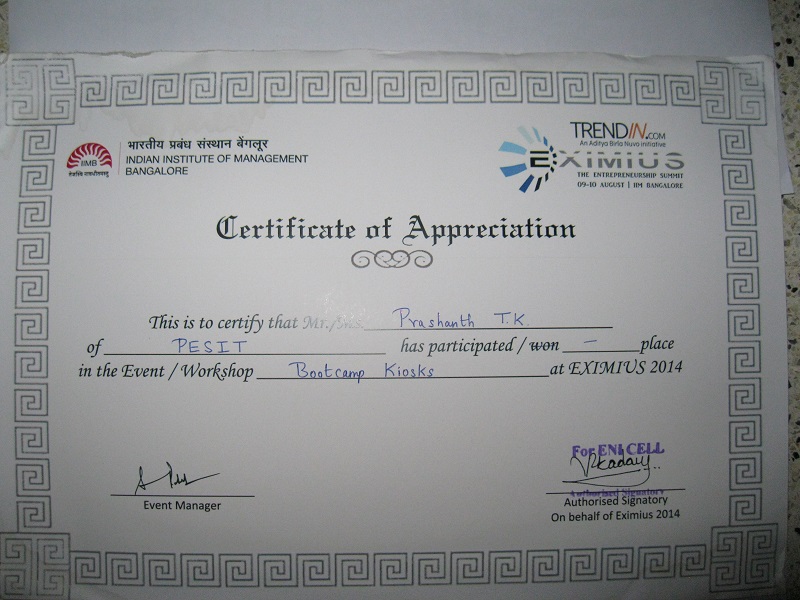 IIMB
भारतीय प्रबंध संस्थान बेंगलूर
INDIAN INSTITUTE OF MANAGEMENT
BANGALORE
TRENDIN.COM
An Aditya Birla Nuvo Initiative
EXIMIUS
THE ENTREPRENEURSHIP SUMMIT
09-10 AUGUST | IIM BANGALORE
Certificate of Appreciation
This is to certify that Mr./Ms. Prashanth T.K.
of PESIT has participated / won – place
in the Event / Workshop Bootcamp Kiosks at EXIMIUS 2014
Event Manager
For EN1 CELL
Authorised Signatory
Authorised Signatory
On behalf of Eximius 2014